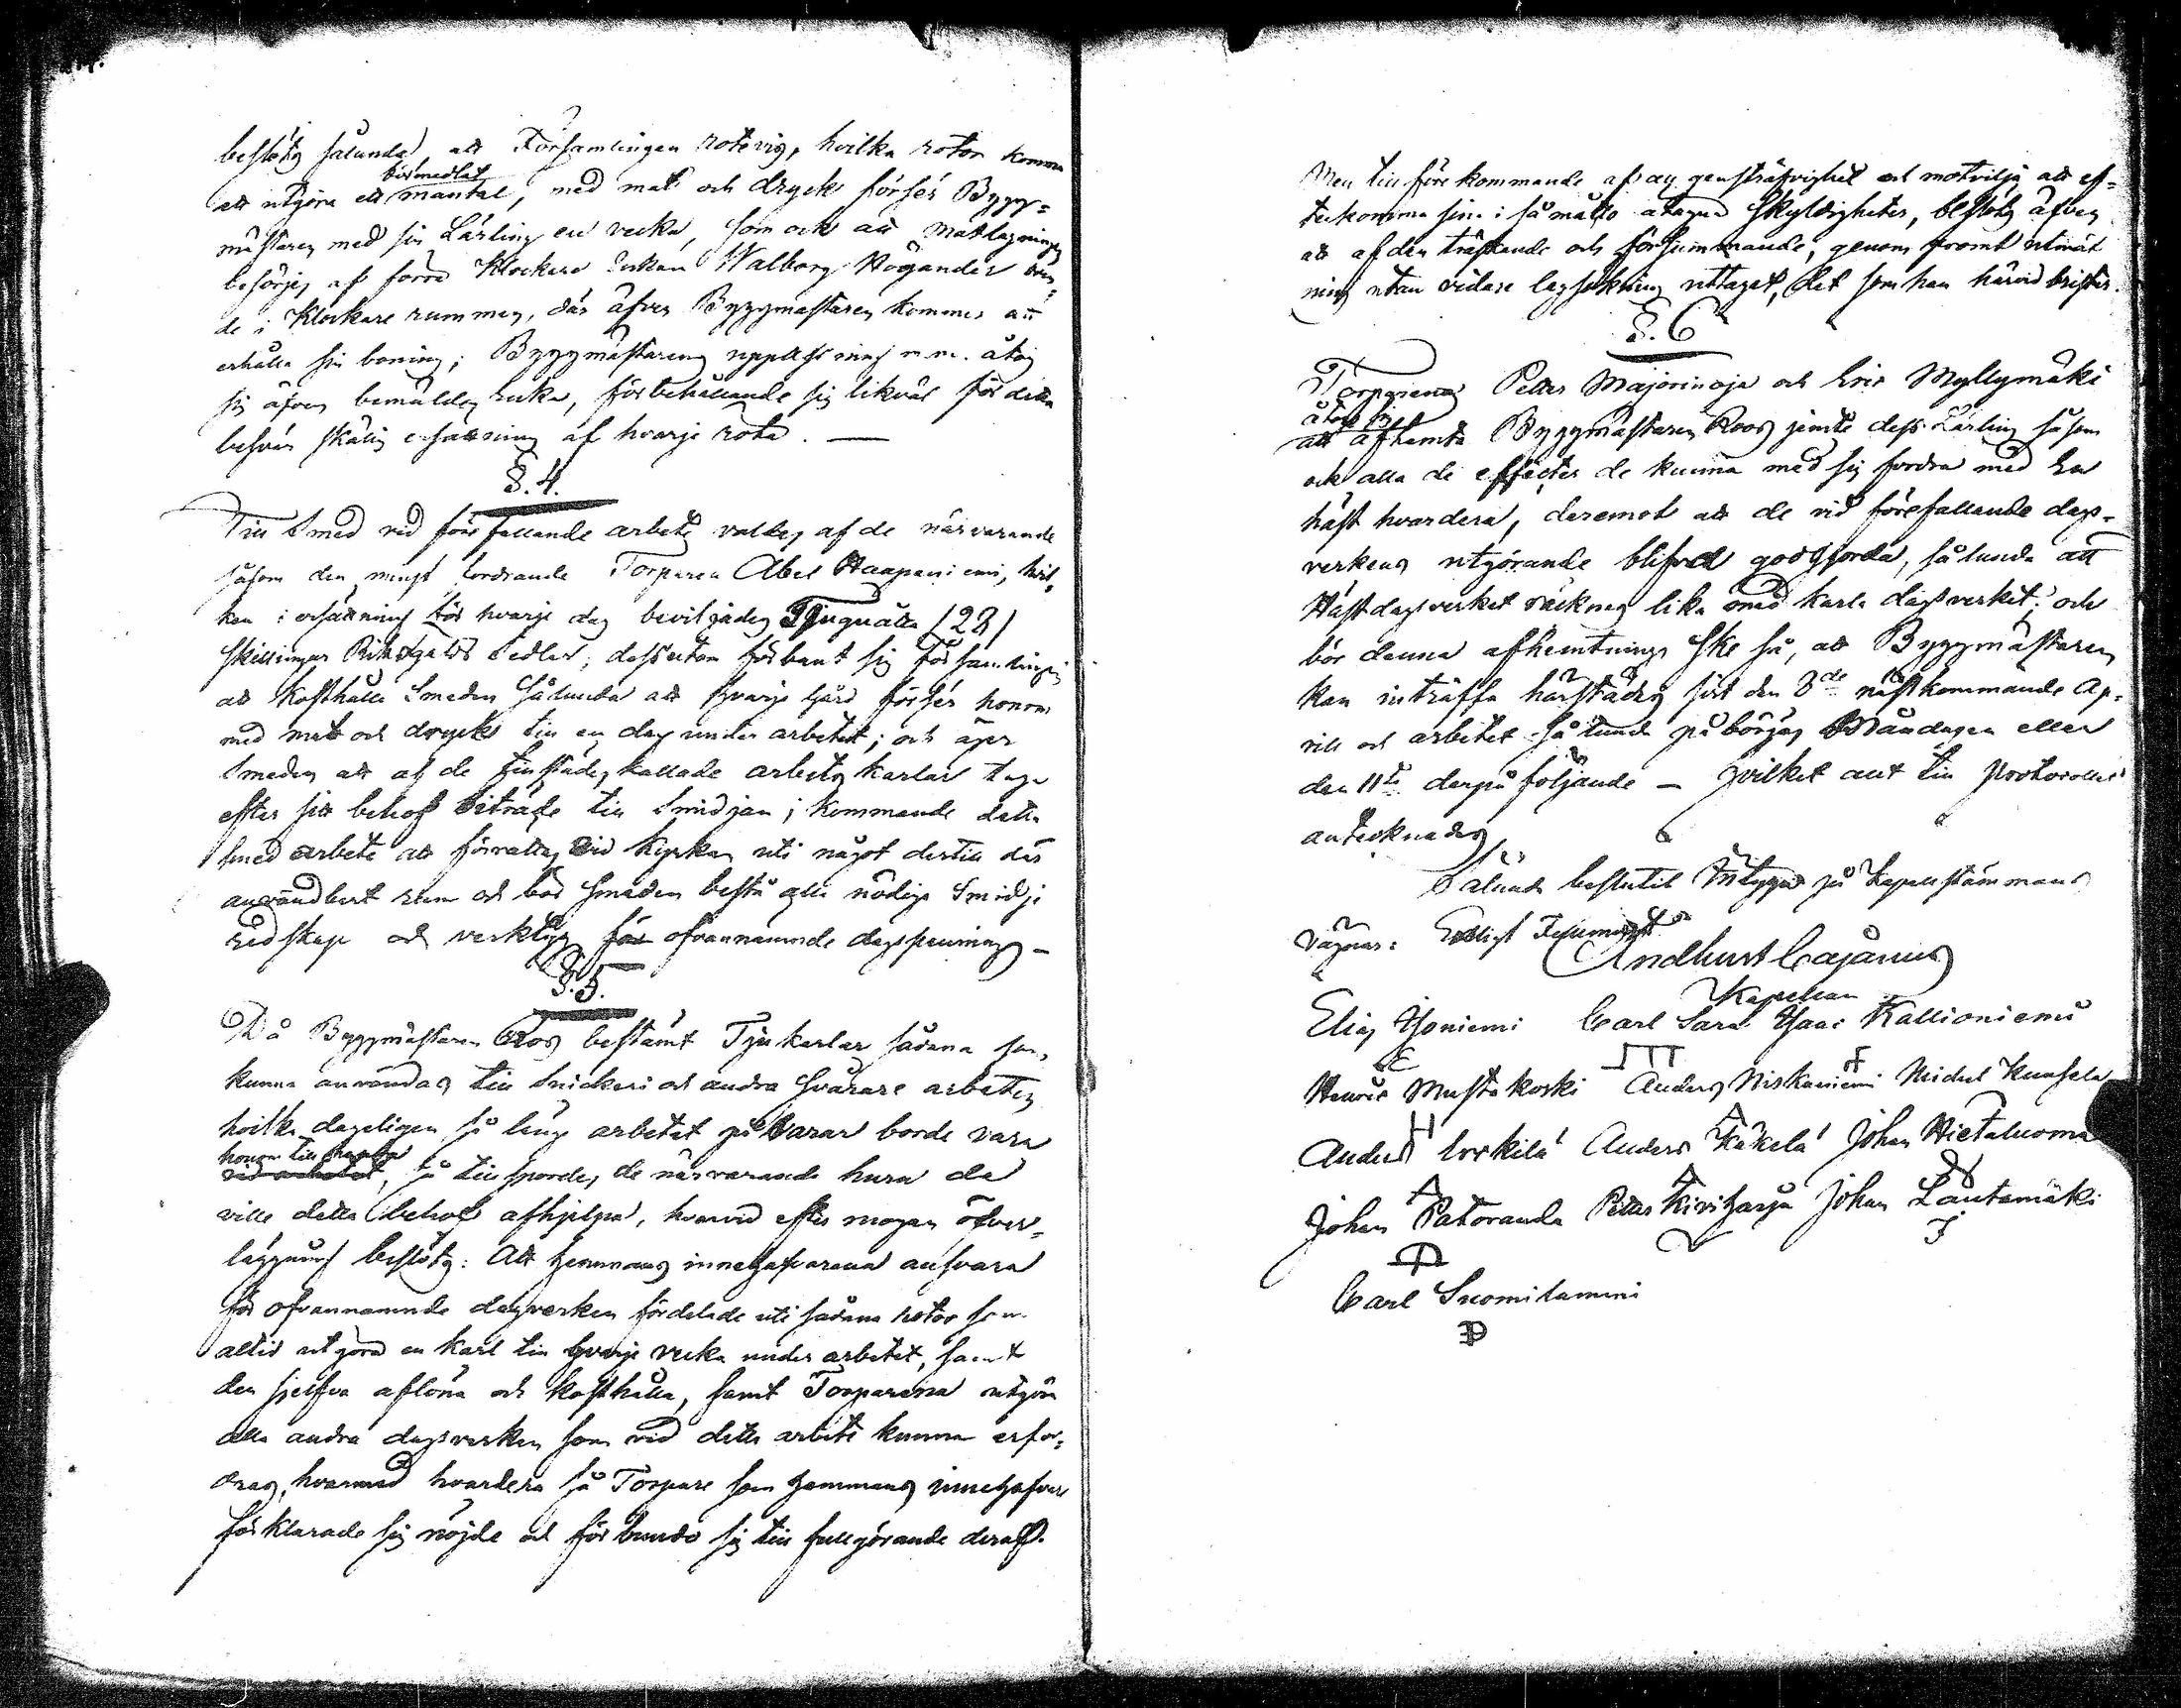 beslöts sålunda att Församlingen rotevis, hvilka rotor komma
att utgöra ett förmedlat mantal, med mat och dryck förser Bygg=
mästaren med sin Lärling en vecka, som ock att matlagningen
besörjes af förra Klockare Enkan Walborg Högander
de i Klockare rummen, där äfven Byggmästaren kommer att
erhålla sin boning; Byggmästarens uppassning m.m. åtog
sig äfven bemälda Enka, förbehållande sig likväl för detta
besvär skälig ersättning af hvarje rota. —
§. 4.
Till Smed vid förefallande arbete valdes af de närvarande
såsom den minst fordrande Torparen Abel Haapaniemi, hvil=
ken i ersättning för hvarje dag beviljades Tjuguåtta /28/
Skillingar Riksgälds Sedlar; dessutom förband sig Församlingen
att kosthålla Smeden sålunda att hvarje Gård förser honom
med mat och dryck till en dag under arbetet; och äger
Smeden att af de tillstädes kallade arbets karlar taga
efter sitt behof biträde till Smidjan; kommande detta
smed arbete att förrättas vid Kyrkan uti något dertill der
användbart rum och bör Smeden bestå alla nödiga Smidje
redskap och verktyg för ofvannämnde dagspenning —
§. 5.
Då Byggmästaren Roos bestämt Tju karlar sådana som
kunna användas till Snickeri och andra svårare arbeten
hvilka dageligen så länge arbetet påvarar borde vara
honom till handa
vid arbetet, så tillspordes de närvarande huru de
ville detta behof afhjelpa, hvarvid efter mogen öfver=
läggning beslöts: Att hemmans innehafvarena ansvara
för ofvannämnde dagsverken fördelade uti sådana rotor som
altid utgöra en karl till hvarje vecka under arbetet, samt
den sjelfva aflöna och kosthålla, samt Torparena utgöra
alla andra dagsverken som vid detta arbete kunna erfor=
dras, hvarmed hvardera så Torpare som hemmans innehafvare
förklarade sig nöjde och förbundo sig till fullgörande deraf.
Men till förekommande af all gensträfvighet och motvilja att ef=
terkomma sina i så måtto åtagna skyldigheter, beslöts äfven
att af den träskande och försummande, genom promt utmät
ning utan vidare lagsökning uttaget, det som han härvid brister.
§. 6
Torparena Petter Majorinoja och Eric Myllymäki
åtog sig
att afhemta Byggmästaren Roos jemte dess Lärling såsom
ock alla de effecter de kunna med sig fordra med En
häst hvardera, deremot att de vid förefallande dags=
verkens utgörande blifva godtgjorda, sålunda att
Hästdagsverket räknas lika med karla dagsverket; och
bör denna afhemtnings ske så, att Byggmästaren
kan inträffa härstädes sist den 8de nästkommande Ap=
rill och arbetet sålunda påbörjas Måndagen eller
den 11te derpå följande — hvilket allt till Protocollet
antecknades
Sålunda beslutit intygas på Kapellstämmans
vägnar: Ex
And Curt Cajanus
Kapellan
Elias Yoniemi Carl Sara Isaac Kallioniemi
Henric Mustakoski Anders Niskaniemi Michel Kunsela
Anders Erkilä Anders Käkelä Johan Hietaluoma
Johan Patoranda Petter Kiviharju Johan Lautamäki
Carl Suomilammi